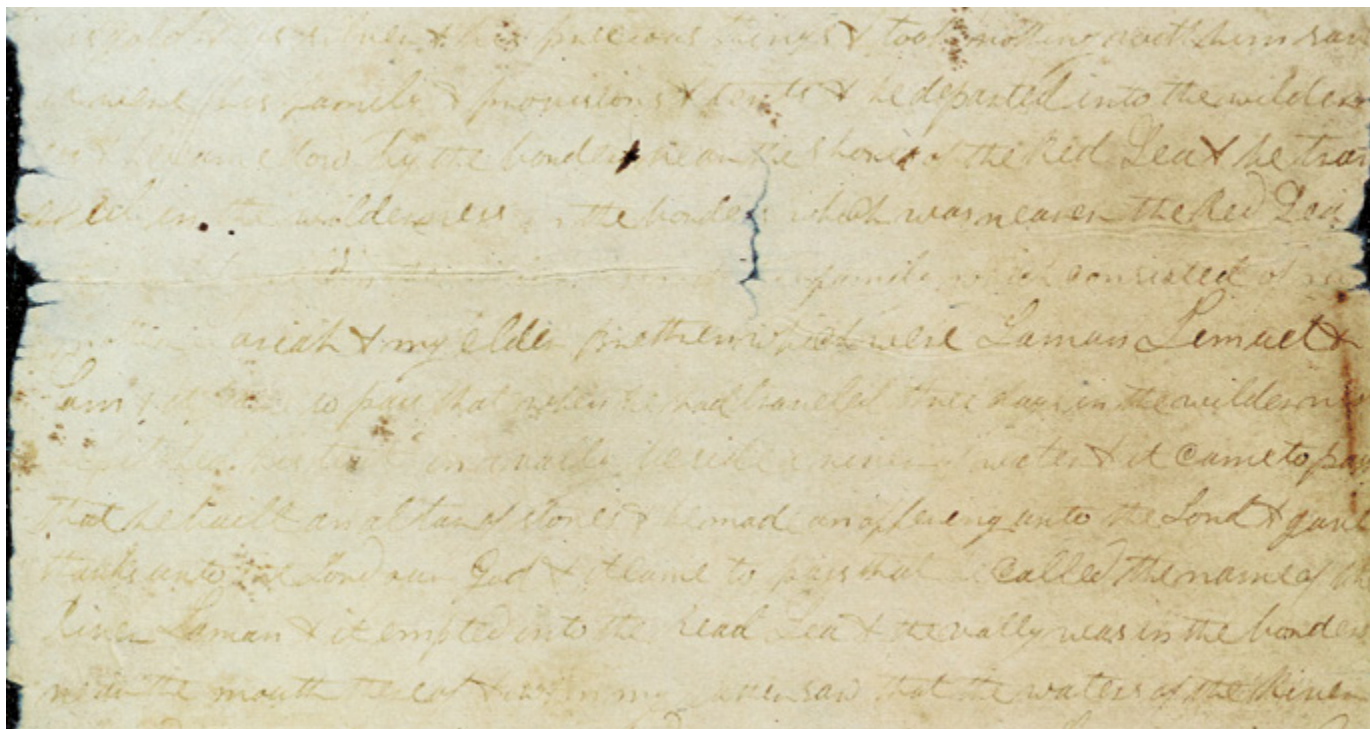 gold & his silver & his precious things & took nothing with him save
it were his family & provisions & tents & he departed into the wilder
ness & he came down by the borders near the shores of the Red Sea & he trav
eled in the wilderness in the borders which was nearer the Red Sea
family which consisted of my
mother Sariah & my elder brethren which were Laman Lemuel &
Sam & it came to pass that when he had traveled three days in the wilderness
he pitched his tent in a vally beside a river of water & it came to pass
that he built an altar of stones & he made an offering unto the Lord & gave
thanks unto the Lord our God & it came to pass that he called the name of the
River Laman & it emptied into the Read Sea & the vally was in the borders
near the mouth thereof & when my father saw that the waters of the River